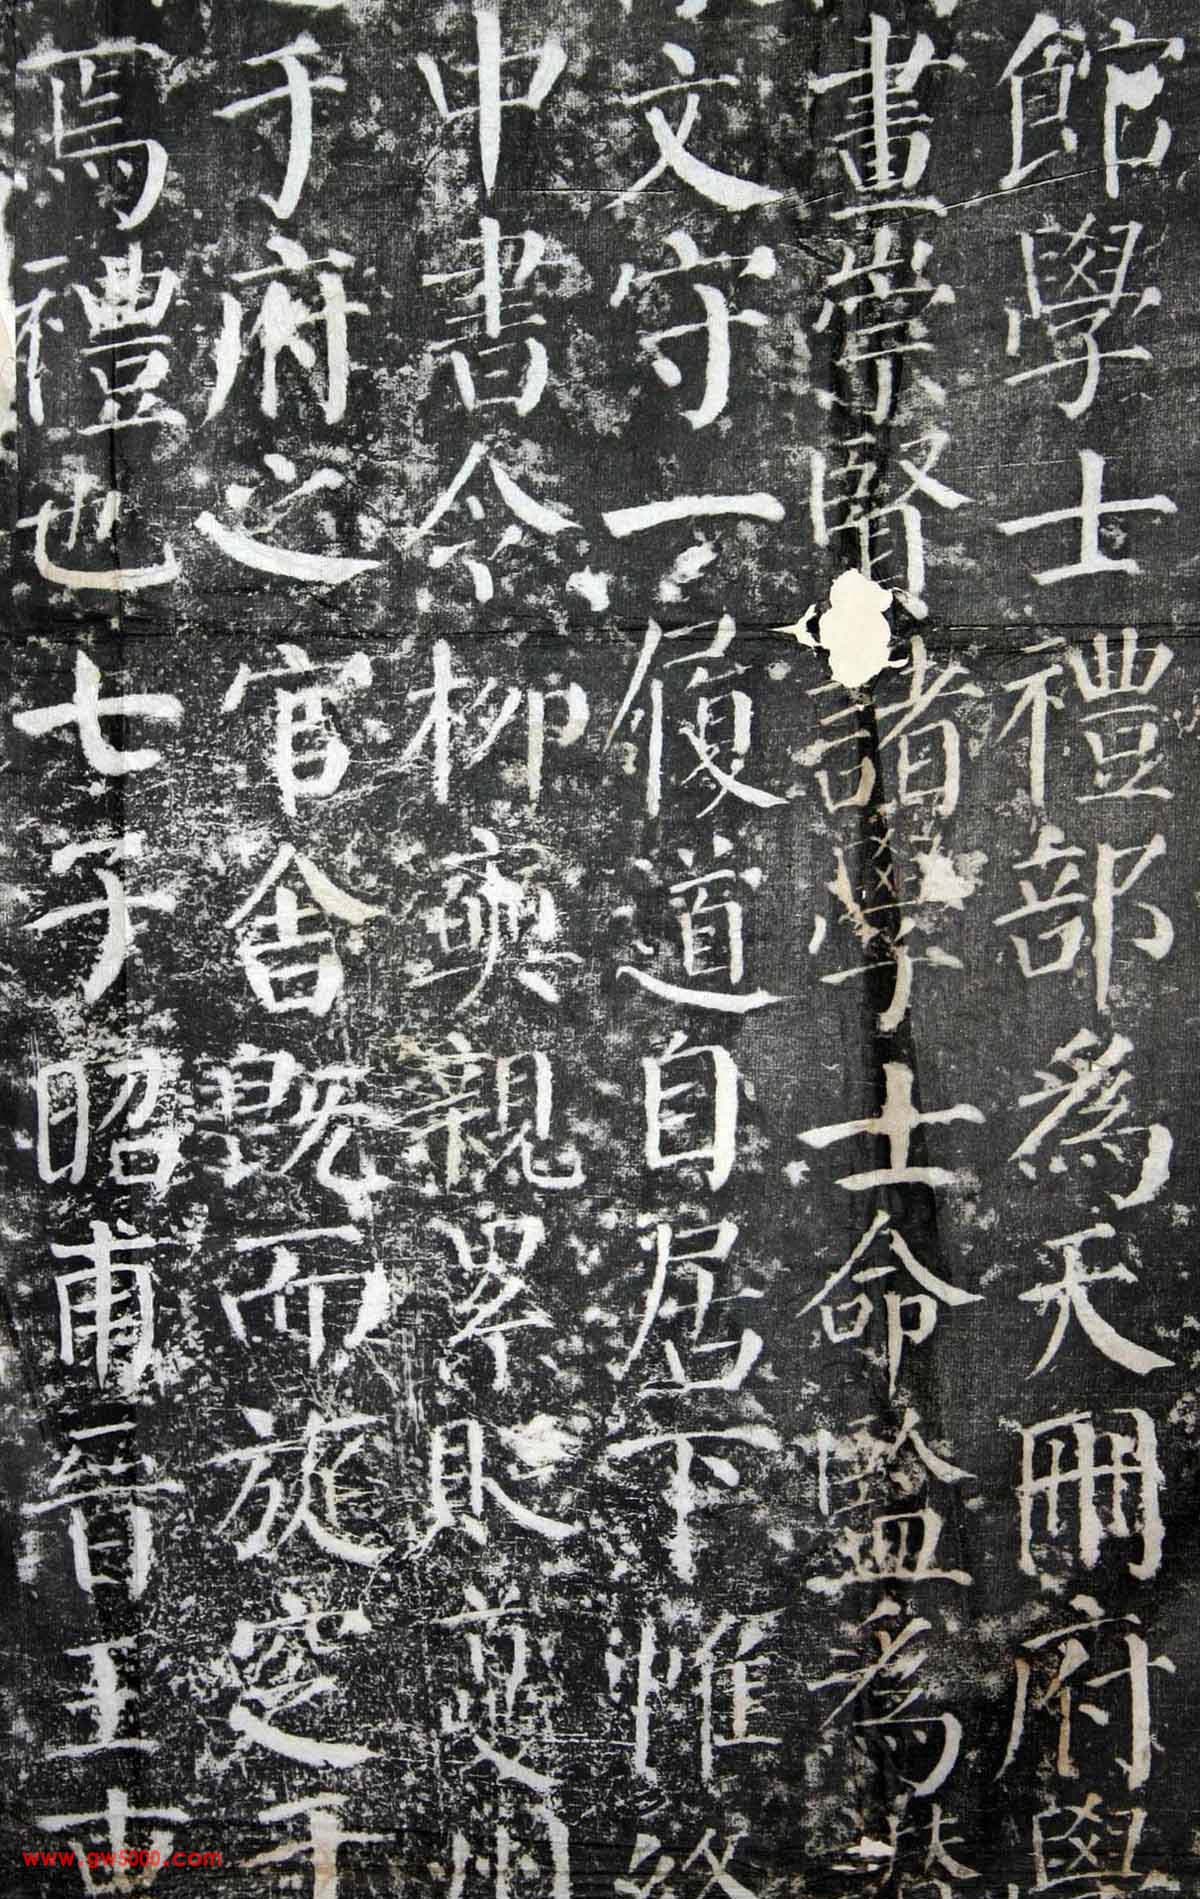 館學士禮部為天冊府學
畫崇賢諸學士命監為讃
文守一履道自居下帷終
中書令柳奭親累貶夔州
于府之官舍既而旋窆于
焉禮也七子昭甫晉王
www.gw5000.com